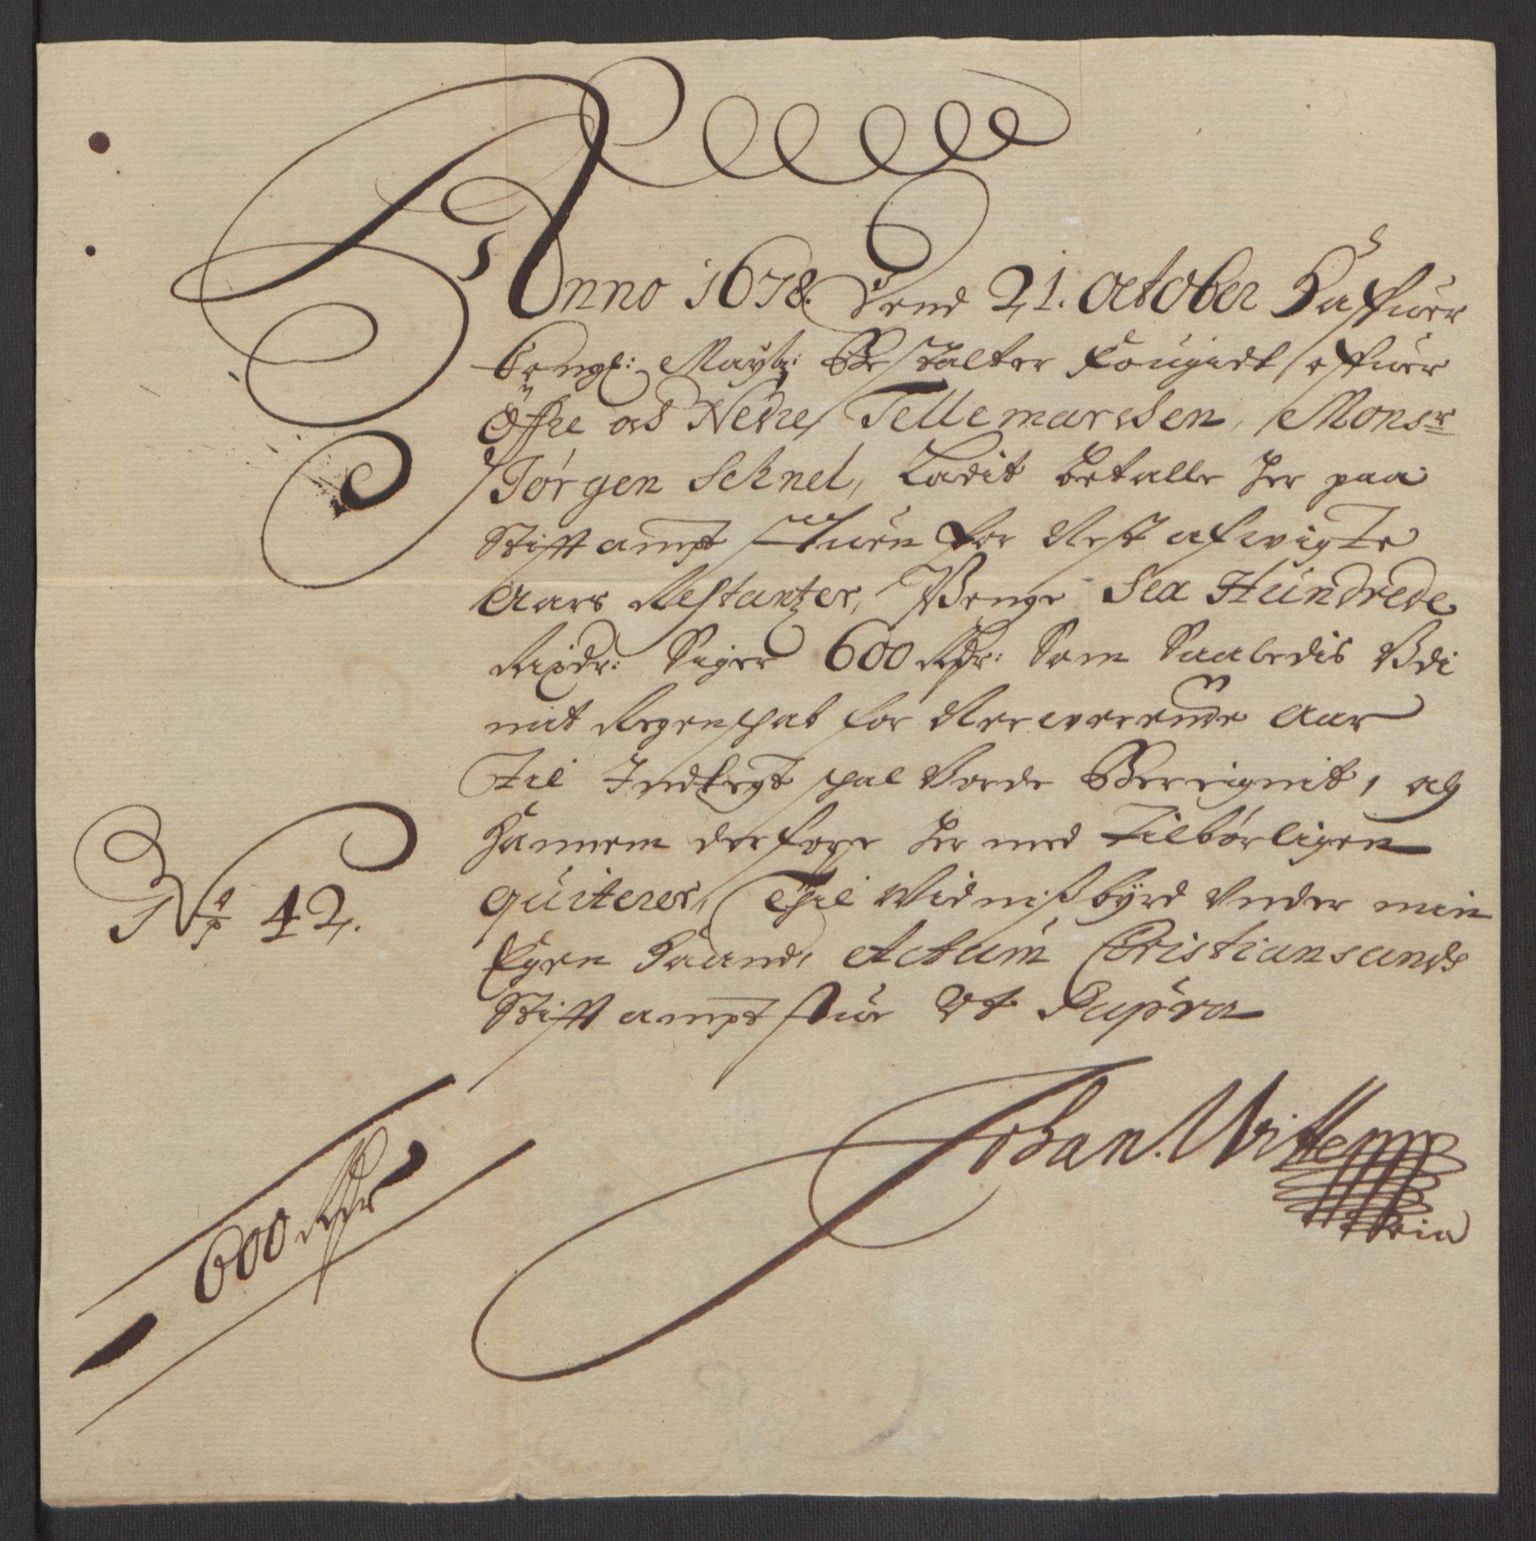 Anno 1678. Dend 21. October Haffuer
Kongl: Mayts: Bestalter Fougidt offuer
Öfre oc Nedre Tellemarcken, Monsr
Jørgen Schnel, Ladit betalle her paa
Stifft ampt stuen for Rest afvigte
Aars Restantzer, Penge Sex Hundrede
Rixdr: Siger 600 Rdr: Som Saaledis Udi
mit Regenschab for Nerwerende Aar
Til Indtegt schal Vorde Bereignit, og
Hannem derfore her med Tilbørligen
quiteres, Thil Vidnisbyrd Under min
Egen Haand, Actum Christiansands
Stifft ampt stue Ut Supra
Johan. Witten
No 42.
600 Rdr